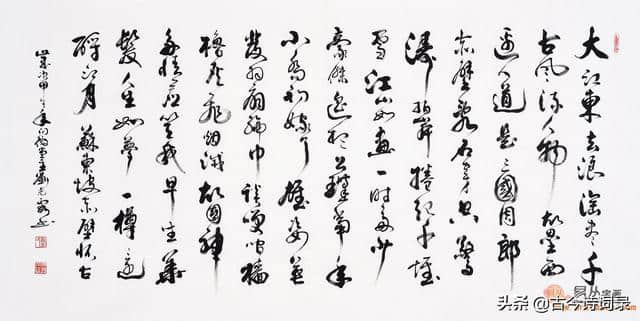 大江東去浪淘尽千
古風流人物故壘西
邊人道是三國周郎
赤壁亂石穿空驚
濤拍岸捲起千堆
雪江山如畫一時多少
豪傑遙想公瑾當年
小喬初嫁了雄姿英
發羽扇綸巾談笑間檣
櫓灰飛烟滅故國神
多情應笑我早生華
髮人生如夢一樽還
酹江月 蘇東坡赤壁懷古
歲次甲午年
头条@古今诗词录